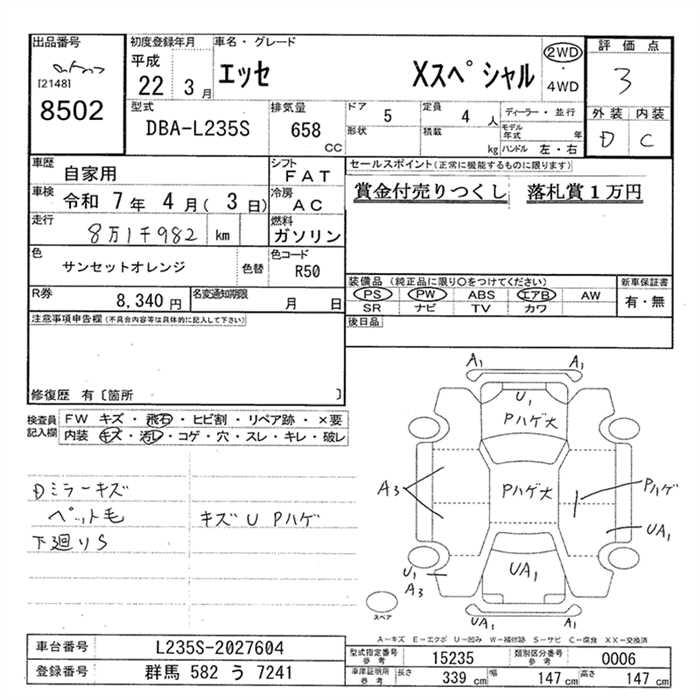 出品番号 初度登録年月 車名・グレード 2WD 評価点
[2148] 平成 22 3月 エッセ Xスペシャル ・ 4WD 3
8502 型式 排気量 ドア 5 定員 4人 ディーラー・並行 外装 内装
DBA-L235S 658 CC 形状 積載 kg モデル年式 年 D C
ハンドル 左・右
車歴 自家用 シフト FAT セールスポイント(正常に機能するものに限ります)
車検 令和 7年 4月(3日) 冷房 AC 賞金付売りつくし 落札賞1万円
走行 8万1千982 km 燃料 ガソリン
色 サンセットオレンジ 色替 色コード R50
装備品(純正品に限り○をつけてください) 新車保証書
PS PW ABS エアB AW 有・無
SR ナビ TV カワ
R券 8,340円 名変通知期限 月 日
後日品
注意事項申告欄(不具合内容等は具体的に記入して下さい)
修復歴 有〔箇所 〕
検査員記入欄 FW キズ・飛石・ヒビ割・リペア跡・×要
内装 キズ・汚れ・コゲ・穴・スレ・キレ・破レ
Dミラーキズ
ペット毛 キズU Pハゲ
下廻りS
A1 A1
U1
Pハゲ大
A3 Pハゲ大 Pハゲ
UA1
U1 A3 UA1
UA1 A1
スペア
A-キズ E-エクボ U-凹み W-補修跡 S-サビ C-腐食 XX-交換済
車台番号 L235S-2027604
登録番号 群馬 582 う 7241
型式指定番号 参考 15235 類別区分番号 参考 0006
車庫証明用 参考 長さ 339 cm 幅 147 cm 高さ 147 cm